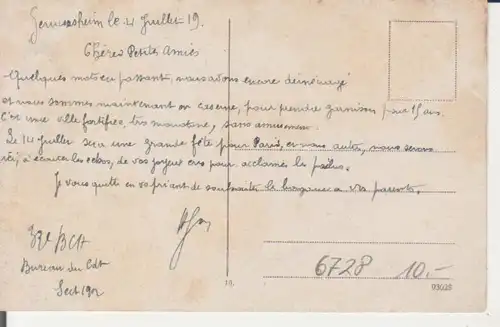 Germersheim le 4 Juillet 19.
Chères Petites Amies
Quelques mots en passant, nous avons encore déménagé
et nous sommes maintenant en caserne, pour prendre garnison pour 15 ans.
C'est une ville fortifiée, très monotone, sans amusement.
Le 14 Juillet sera une grande fête pour Paris, et nous autres, nous serons
ici, à écouter les échos, de vos joyeux cris pour acclamer les poilus.
Je vous quitte en vous priant de souhaiter le bonjour à vos parents.
32e BCA
Bureau du Cdt
Sect 192
6728 10.-
19.
93028